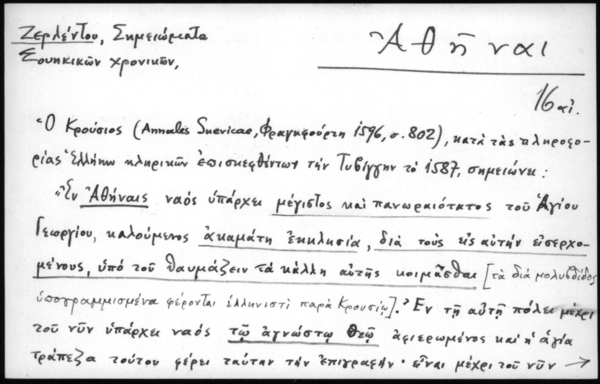 Ζερλέντου, Σημειώματα
Σουηκικῶν χρονικῶν,
Ἀθῆναι
16 αἰ.
Ὁ Κρούσιος (Annales Suevicae, Φραγκφούρτη 1596, σ. 802), κατὰ τὰς πληροφο-
ρίας Ἑλλήνων κληρικῶν ἐπισκεφθέντων τὴν Τυβίγγην τὸ 1587, σημειώνει:
"Ἐν Ἀθήναις ναὸς ὑπάρχει μέγιστος καὶ πανωραιότατος τοῦ Ἁγίου
Γεωργίου, καλούμενος ἀκαμάτη ἐκκλησία, διὰ τοὺς εἰς αὐτὴν εἰσερχο-
μένους, ὑπὸ τοῦ θαυμάζειν τὰ κάλλη αὐτῆς κοιμᾶσθαι [τὰ διὰ μολυβδίδος
ὑπογραμμισμένα φέρονται ἑλληνιστὶ παρὰ Κρουσίῳ]. Ἐν τῇ αὐτῇ πόλει μέχρι
τοῦ νῦν ὑπάρχει ναὸς τῷ ἀγνώστῳ Θεῷ ἀφιερωμένος καὶ ἡ ἁγία
τράπεζα τούτου φέρει ταύτην τὴν ἐπιγραφήν· εἶναι μέχρι τοῦ νῦν →